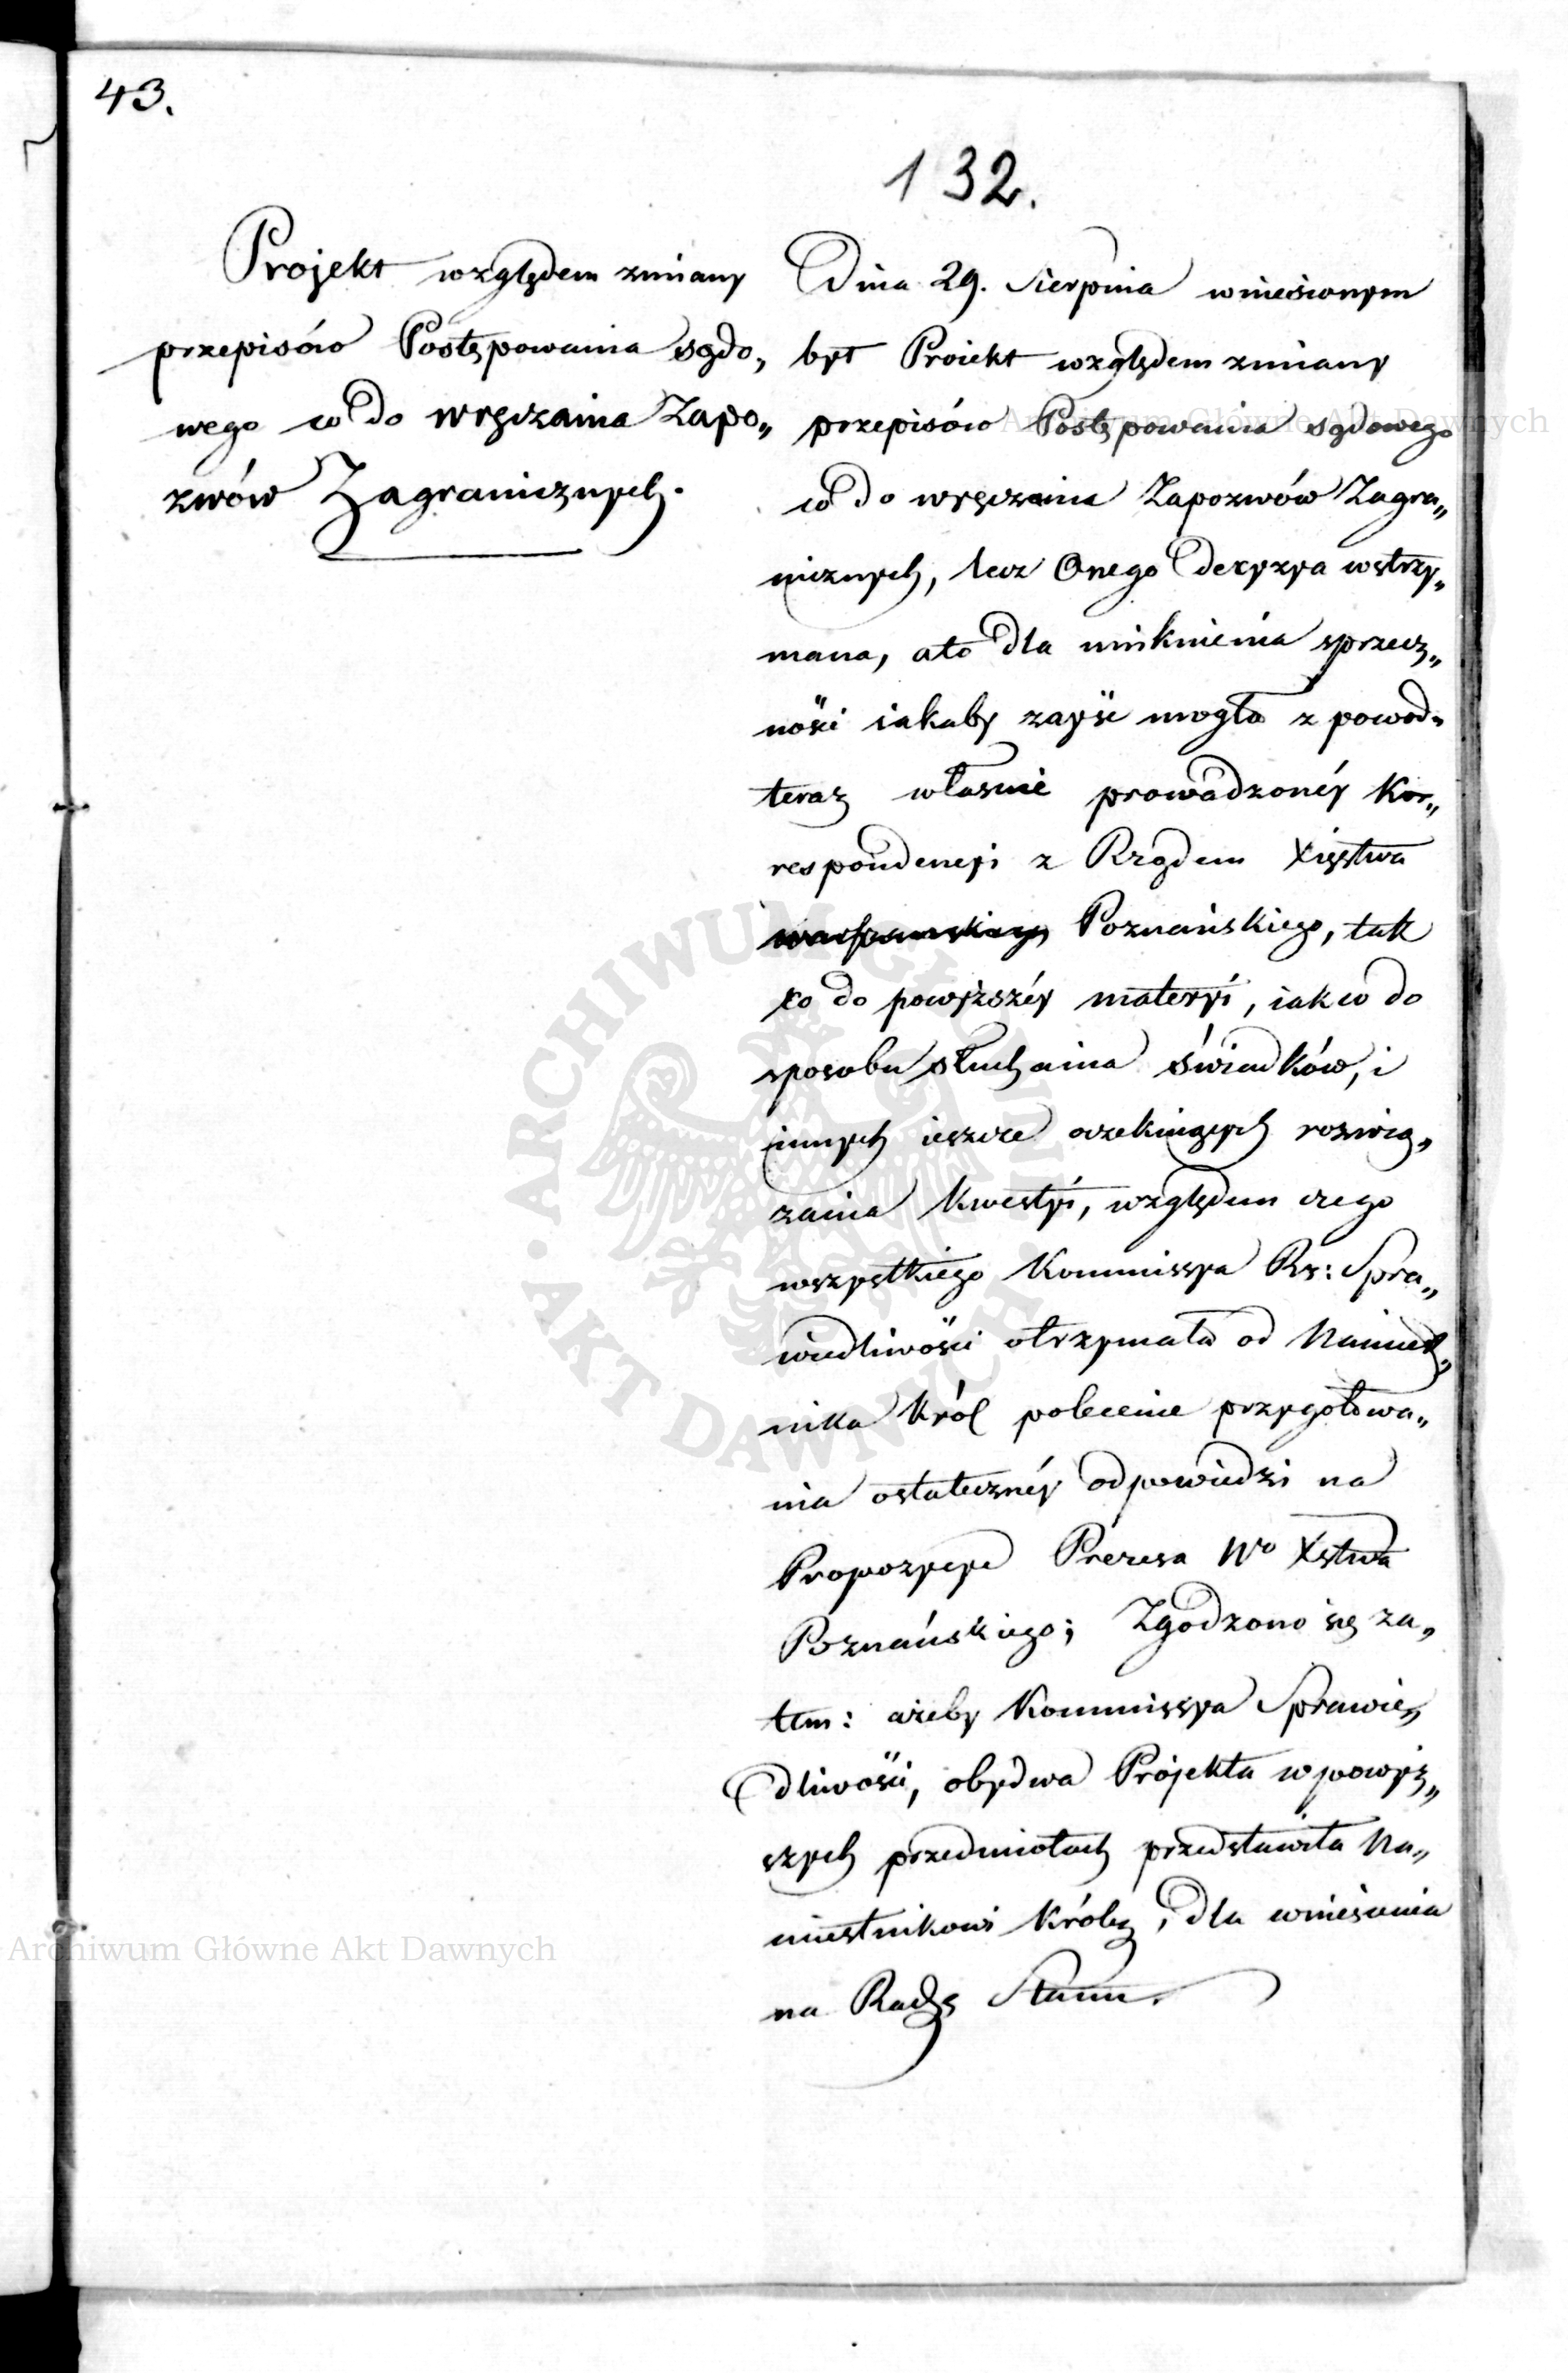 43.
132.
Projekt względem zmiany
przepisów Postępowania sądo„
wego co do wręczania Zapo„
zwów Zagranicznych.
Dnia 29. Sierpnia wniesionym
był Proiekt względem zmiany
przepisów Postępowania sądowego
co do wręczania Zapozwów Zagra„
nicznych, lecz Onego decyzya wstrzy„
mana, a to dla uniknienia sprzecz„
ności iakaby zayść mogła z powodu
teraz właśnie prowadzonéy Kor„
respondencyi z Rządem Xięstwa
Poznańskiego, tak
co do powyższéy materyi, iak co do
sposobu słuchania świadków, i
innych ieszcze oczekuiących rozwią„
zania kwestyi, względem czego
wszystkiego Kommissya Rz: Spra„
wiedliwości otrzymała od Namiest„
nika Król polecenie przygotowa„
nia ostatecznéy odpowiedzi na
Propozycye Prezesa Wo Xstwa
Poznańskiego; Zgodzono się za„
tem: ażeby Kommissya Sprawie„
dliwości, obydwa Projekta w powyż„
szych przedmiotach przedstawiła Na„
miestnikowi Królez, dla wniesienia
na Radę Stanu.
ARCHIWUM GŁÓWNE AKT DAWNYCH
Archiwum Główne Akt Dawnych
Archiwum Główne Akt Dawnych